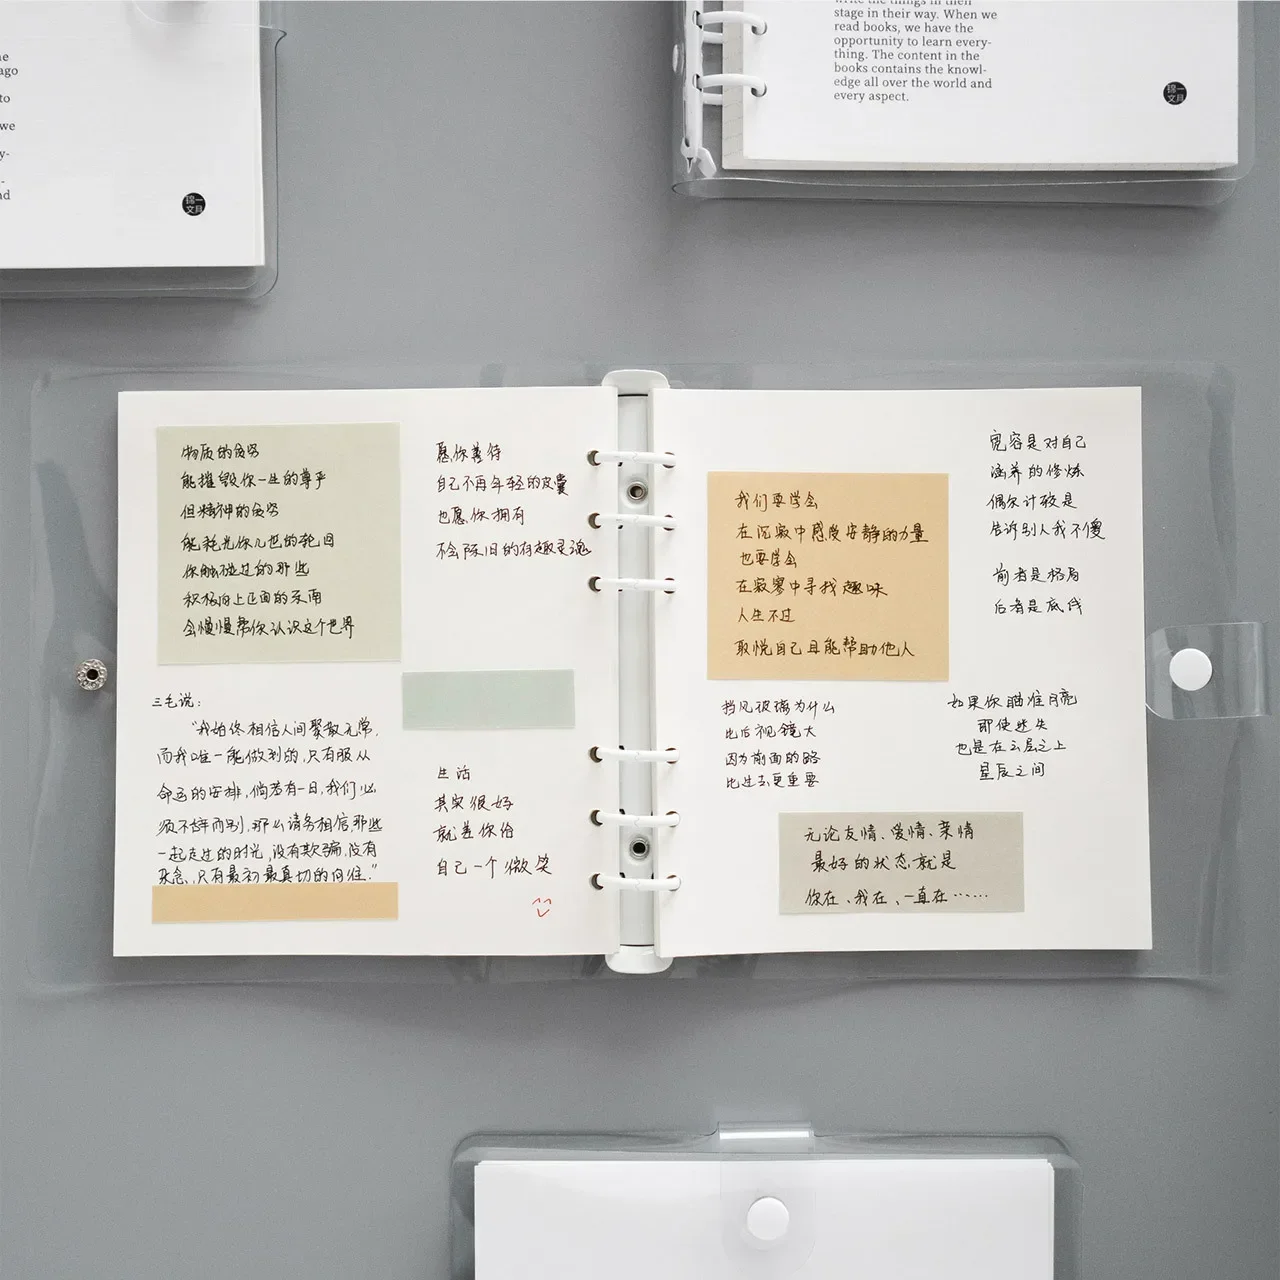 ago
to
we
y-
-
锦一
文具
stage in their way. When we
read books, we have the
opportunity to learn every-
thing. The content in the
books contains the knowl-
edge all over the world and
every aspect.
锦一
文具
物质的贫穷
能摧毁你一生的尊严
但精神的贫穷
能耗光你几世的轮回
你触碰过的那些
积极向上正面的东西
会慢慢帮你认识这个世界
愿你善待
自己不再年轻的皮囊
也愿你拥有
不会陈旧的有趣灵魂
三毛说：
“我始终相信人间聚散无常，
而我唯一能做到的，只有服从
命运的安排，倘若有一日，我们必
须不辞而别，那么请务相信，那些
一起走过的时光，没有欺骗，没有
杂念，只有最初最真切的向往。”
生活
其实很好
就差你给
自己一个微笑
我们要学会
在沉寂中感受安静的力量
也要学会
在寂寞中寻找趣味
人生不过
取悦自己且能帮助他人
宽容是对自己
涵养的修炼
偶尔计较是
告诉别人我不傻
前者是格局
后者是底线
挡风玻璃为什么
比后视镜大
因为前面的路
比过去更重要
如果你瞄准月亮
即使迷失
也是在云层之上
星辰之间
无论友情、爱情、亲情
最好的状态就是
你在、我在、一直在……